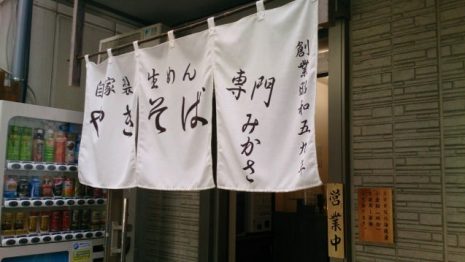 自家製 生めん
やきそば
専門 みかさ
創業昭和五九年
営業中